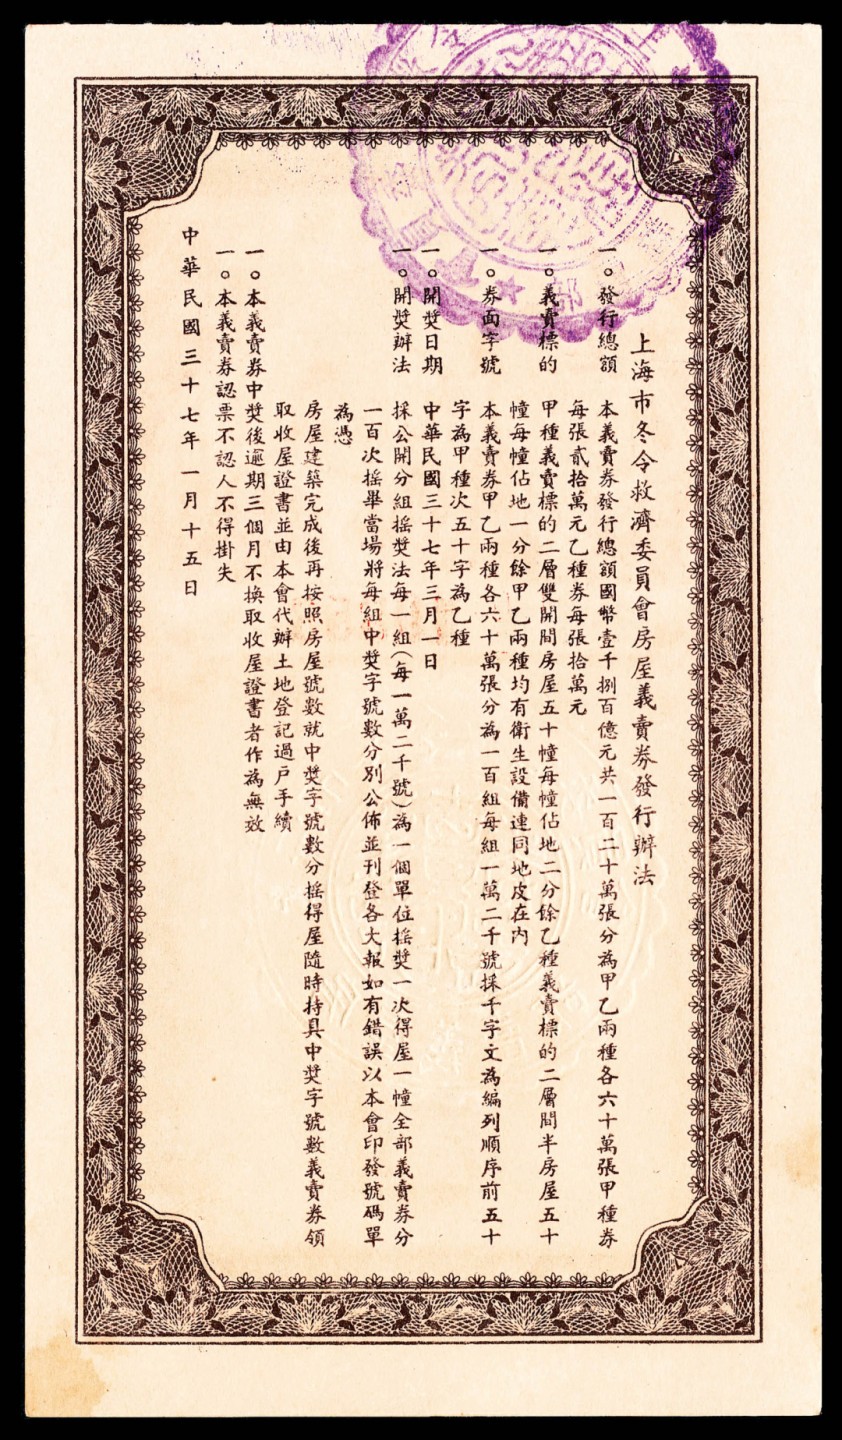 上海市冬令救濟委員會房屋義賣券發行辦法
一。發行總額　本義賣券發行總額國幣壹千捌百億元共一百二十萬張分為甲乙兩種各六十萬張甲種券
每張貳拾萬元乙種券每張拾萬元
一。義賣標的　甲種義賣標的二層雙開間房屋五十幢每幢佔地二分餘乙種義賣標的二層間半房屋五十
幢每幢佔地一分餘甲乙兩種均有衛生設備連同地皮在內
一。券面字號　本義賣券甲乙兩種各六十萬張分為一百組每組一萬二千號採千字文為編列順序前五十
字為甲種次五十字為乙種
一。開奬日期　中華民國三十七年三月一日
一。開奬辦法　採公開分組搖奬法每一組(每一萬二千號)為一個單位搖奬一次得屋一幢全部義賣券分
一百次搖畢當場將每組中奬字號數分別公佈並刊登各大報如有錯誤以本會印發號碼單
為憑
房屋建築完成後再按照房屋號數就中奬字號數分搖得屋隨時持具中奬字號數義賣券領
取收屋證書並由本會代辦土地登記過戶手續
一。本義賣券中奬後逾期三個月不換取收屋證書者作為無效
一。本義賣券認票不認人不得掛失
中華民國三十七年一月十五日